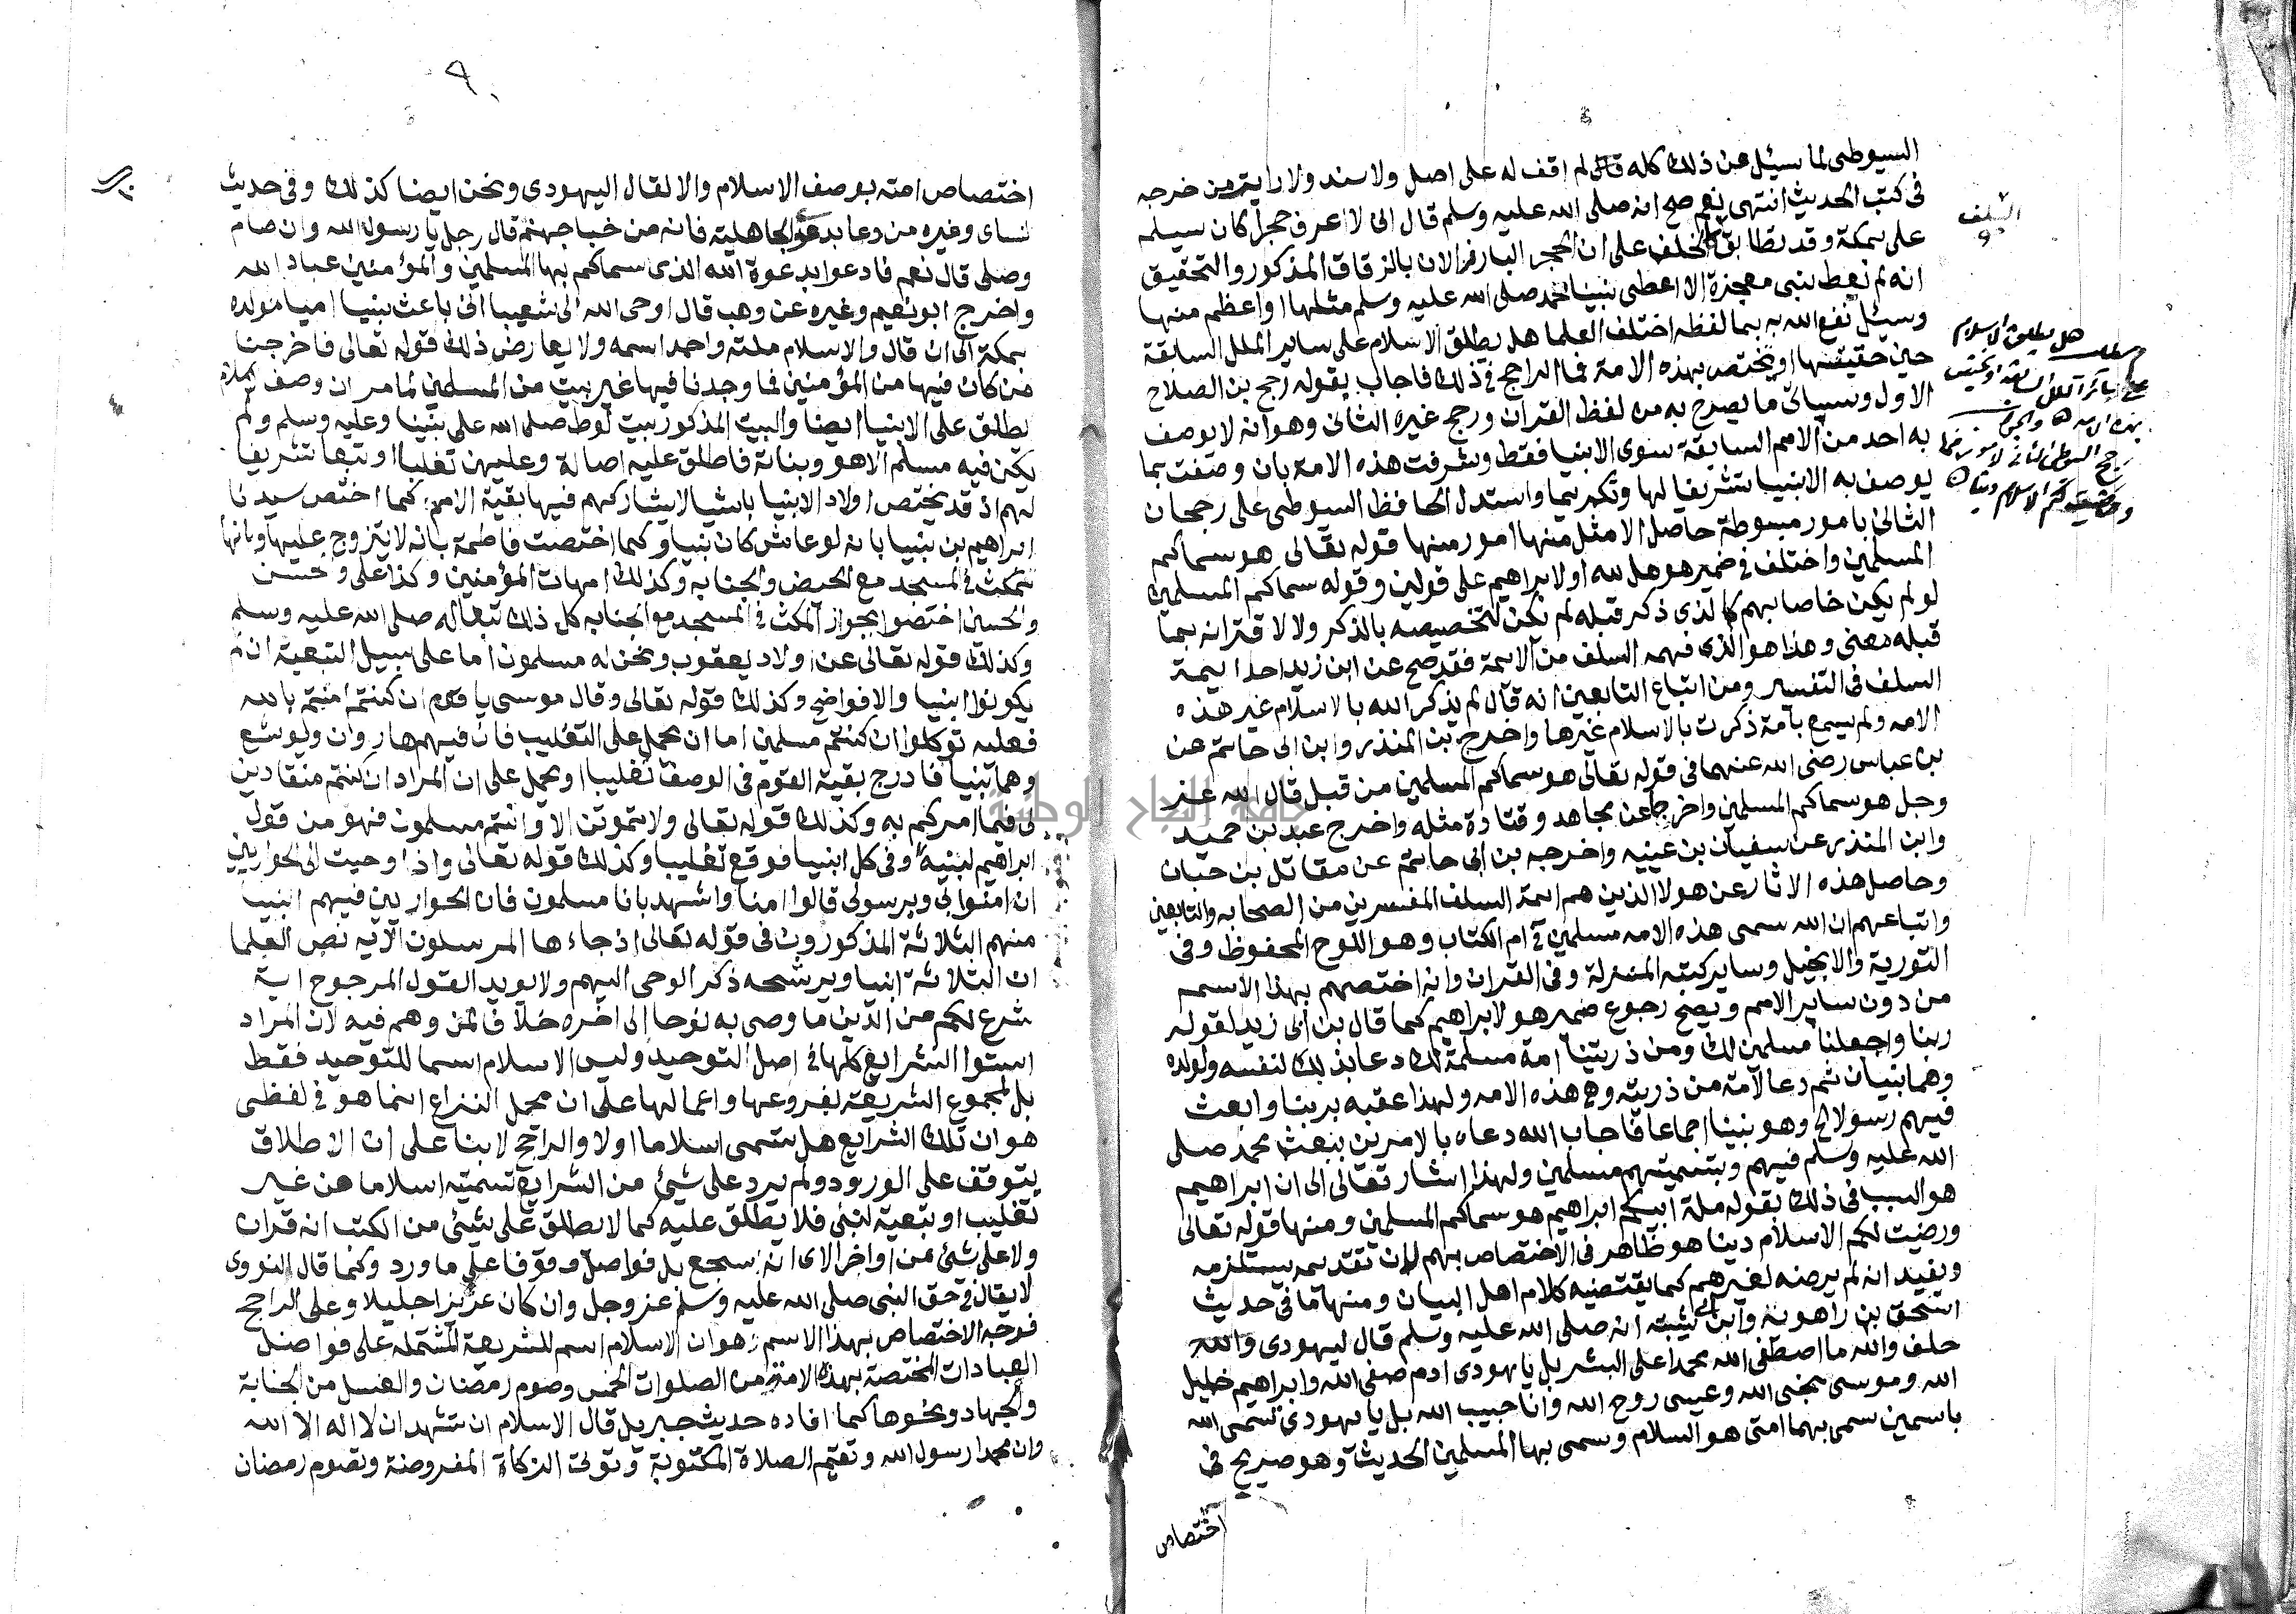 السيوطى لما سيئل عن ذلك كله قال لم اقف له على اصل ولا سند ولا رايته من خرجه
فى كتب الحديث انتهى نعم صح انه صلى الله عليه وسلم قال انى لا اعرف حجرا كان سيلم
على بمكة وقد تطابق الخلف على ان الحجر البارز الان بالزقاق المذكور والتحقيق
انه لم نعط نبى معجزة الا اعطى نبينا محمد صلى الله عليه وسلم مثلها او اعظم منها
وسيئل نفع الله به بما لفظه اختلف العلما هل يطلق الاسلام على ساير الملل السابقة
حين حقيقتها او يختص بهذه الامة فما الراجح فى ذلك فاجاب بقوله رجح بن الصلاح
الاول وسياتى ما يصرح به من لفظ القران ورجح غيره الثانى وهو انه لا يوصف
به احد من الامم السابقة سوى الانبيا فقط وشرفت هذه الامة بان وصفت بما
يوصف به الانبيا تشريفا لها وتكريما واستدل الحافظ السيوطى على رجحان
الثانى بامور مبسوطة حاصل الامثل منها امور منها قوله تعالى هو سماكم
المسلمين واختلف فى ضمير هو هل لله او لابراهيم على قولين وقوله سماكم المسلمين
لو لم يكن خاصا بهم كالذى ذكر قبله لم يكن لتخصيصه بالذكر ولا لاقترانه بما
قبله معنى وهذا هو الذى فهمه السلف من الايمة فقد صح عن ابن زيد احد ايمة
السلف فى التفسير ومن اتباع التابعين انه قال لم يذكر الله بالاسلام غير هذه
الامه ولم يسمع بامة ذكرت بالاسلام غيرها واخرج بن المنذر وابن ابى حاتم عن
بن عباس رضى الله عنهما فى قوله تعالى هو سماكم المسلمين من قبل قال الله عز
وجل هو سماكم المسلمين واخرجا عن مجاهد وقتادة مثله واخرج عبد بن حميد
وابن المنذر عن سفيان بن عيينه واخرجه بن ابى حاتم عن مقاتل بن حبان
وحاصل هذه الاثار عن هولا الذين هم ايمة السلف المفسرين من الصحابه والتابعين
واتباعهم ان الله سمى هذه الامه مسلمين فى ام الكتاب وهو اللوح المحفوظ وفى
التورية والانجيل وساير كتبه المنزلة وفى القران وانه اختصهم بهذا الاسم
من دون ساير الامم ويصح رجوع ضمير هو لابراهيم كما قال بن ابى زيد لقوله
ربنا واجعلنا مسلمين لك ومن ذريتنا امة مسلمة لك دعا بذلك لنفسه ولولده
وهما نبيان ثم دعا لامة من ذريته وهى هذه الامه ولهذا عقبه بربنا وابعث
فيهم رسولا الخ وهو نبينا اجماعا فاجاب الله دعاه بالامرين ببعث محمد صلى
الله عليه وسلم فيهم وبتسميتهم مسلمين ولهذا اشار تعالى الى ان ابراهيم
هو السبب فى ذلك بقوله ملة ابيكم ابراهيم هو سماكم المسلمين ومنها قوله تعالى
ورضيت لكم الاسلام دينا هو ظاهر فى الاختصاص بهم لان تقديمه يستلزمه
ويفيد انه لم يرضه لغيرهم كما يقتضيه كلام اهل البيان ومنها ما فى حديث
اسحق بن راهويه وابن ابى شيبة انه صلى الله عليه وسلم قال ليهودى والله
حلف والله ما اصطفى الله محمدا على البشر بل يا يهودى ادم صفى الله وابراهيم خليل
الله وموسى نجى الله وعيسى روح الله وانا حبيب الله بل يا يهودى تسمى الله
باسمين سمى بهما امتى هو السلام وسمى بها المسلمين الحديث وهو صريح فى
اختصاص
السلف
هل يطلق الاسلام
على ساير الملل السابقه او يختص
بهذه الامه
رجح السيوطى الثانى
ورضيت لكم الاسلام دينا
٩
اختصاص امته بوصف الاسلام والا لقال اليهودى ونحن ايضا كذلك وفى حديث
نساى وغيره من دعا بدعوى الجاهلية فانه من جثا جهنم قال رجل يا رسول الله وان صام
وصلى قال نعم فادعوا بدعوة الله الذى سماكم بها المسلمين والمؤمنين عباد الله
واخرج ابو نعيم وغيره عن وهب قال اوحى الله الى شعيبا انى باعث نبيا اميا مولده
بمكة الى ان قال والاسلام ملته واحمد اسمه ولا يعارض ذلك قوله تعالى فاخرجنا
من كان فيها من المؤمنين فما وجدنا فيها غير بيت من المسلمين لما مر ان وصف الاسلام
يطلق على الانبيا ايضا والبيت المذكور بيت لوط صلى الله على نبينا وعليه وسلم ولم
يكن فيه مسلم الا هو وبناته فاطلق عليه اصالة وعليهن تغليبا او تبعا تشريفا
لهم اذ قد يختص اولاد الانبيا باشيا لا يشاركهم فيها بقية الامم كما اختص سيدنا
ابراهيم بن نبينا بانه لو عاش كان نبيا وكما اختصت فاطمة بانه لا يتزوج عليها وبانها
تمكث فى المسجد مع الحيض والجنابه وكذلك امهات المؤمنين وكذا على والحسن
والحسين اختصوا بجواز المكث فى المسجد مع الجنابه كل ذلك تبعا له صلى الله عليه وسلم
وكذلك قوله تعالى عن اولاد يعقوب ونحن له مسلمون اما على سبيل التبعية ان لم
يكونوا انبيا والا فواضح وكذلك قوله تعالى وقال موسى يا قوم ان كنتم امنتم بالله
فعليه توكلوا ان كنتم مسلمين اما ان يحمل على التغليب فان فيهم هارون ويوشع
وهما نبيا فادرج بقية القوم فى الوصف تغليبا او يحمل على ان المراد ان كنتم منقادين
لى فيما امركم به وكذلك قوله تعالى ولا تموتن الا وانتم مسلمون فهو من قول
ابراهيم لبنيه وفى كل انبيا فوقع تغليبا وكذلك قوله تعالى واذ اوحيت الى الحواريين
ان امنوا بى وبرسولى قالوا امنا واشهد بانا مسلمون فان الحواريين فيهم انبيا
منهم الثلاثة المذكورون فى قوله تعالى اذ جاءها المرسلون الايه نص العلما
ان الثلاثة انبيا ويرشحه ذكر الوحى اليهم ولا يويد القول المرجوح اية
شرع لكم من الدين ما وصى به نوحا الى اخره خلافا لمن وهم فيه لان المراد
استوا الشرايع كلها فى اصل التوحيد وليس الاسلام اسما للتوحيد فقط
بل لمجموع الشريعة بفروعها واعمالها على ان محل النزاع انما هو فى لفظى
هو ان تلك الشرايع هل تسمى اسلاما اولا والراجح لا بنا على ان الاطلاق
يتوقف على الورود ولم يرد على شيئ من الشرايع تسميته اسلاما من غير
تغليب او تبعية لنبى فلا يطلق عليه كما لا يطلق على شيئ من الكتب انه قران
ولا على شيئ من اواخر الاى انه سجع بل فواصل وقوفا على ما ورد وكما قال النووى
لا يقال فى حق النبى صلى الله عليه وسلم عز وجل وان كان عزيزا جليلا وعلى الراجح
فوجه الاختصاص بهذا الاسم هو ان الاسلام اسم للشريعة المشتمله على فواضل
العبادات المختصة بهذه الامة من الصلوات الخمس وصوم رمضان والغسل من الجنابة
والجهاد ونحوها كما افاده حديث جبريل قال الاسلام ان تشهد ان لا اله الا الله
وان محمدا رسول الله وتقيم الصلاة المكتوبة وتوتى الزكاة المفروضة وتصوم رمضان
جامعة النجاح الوطنية